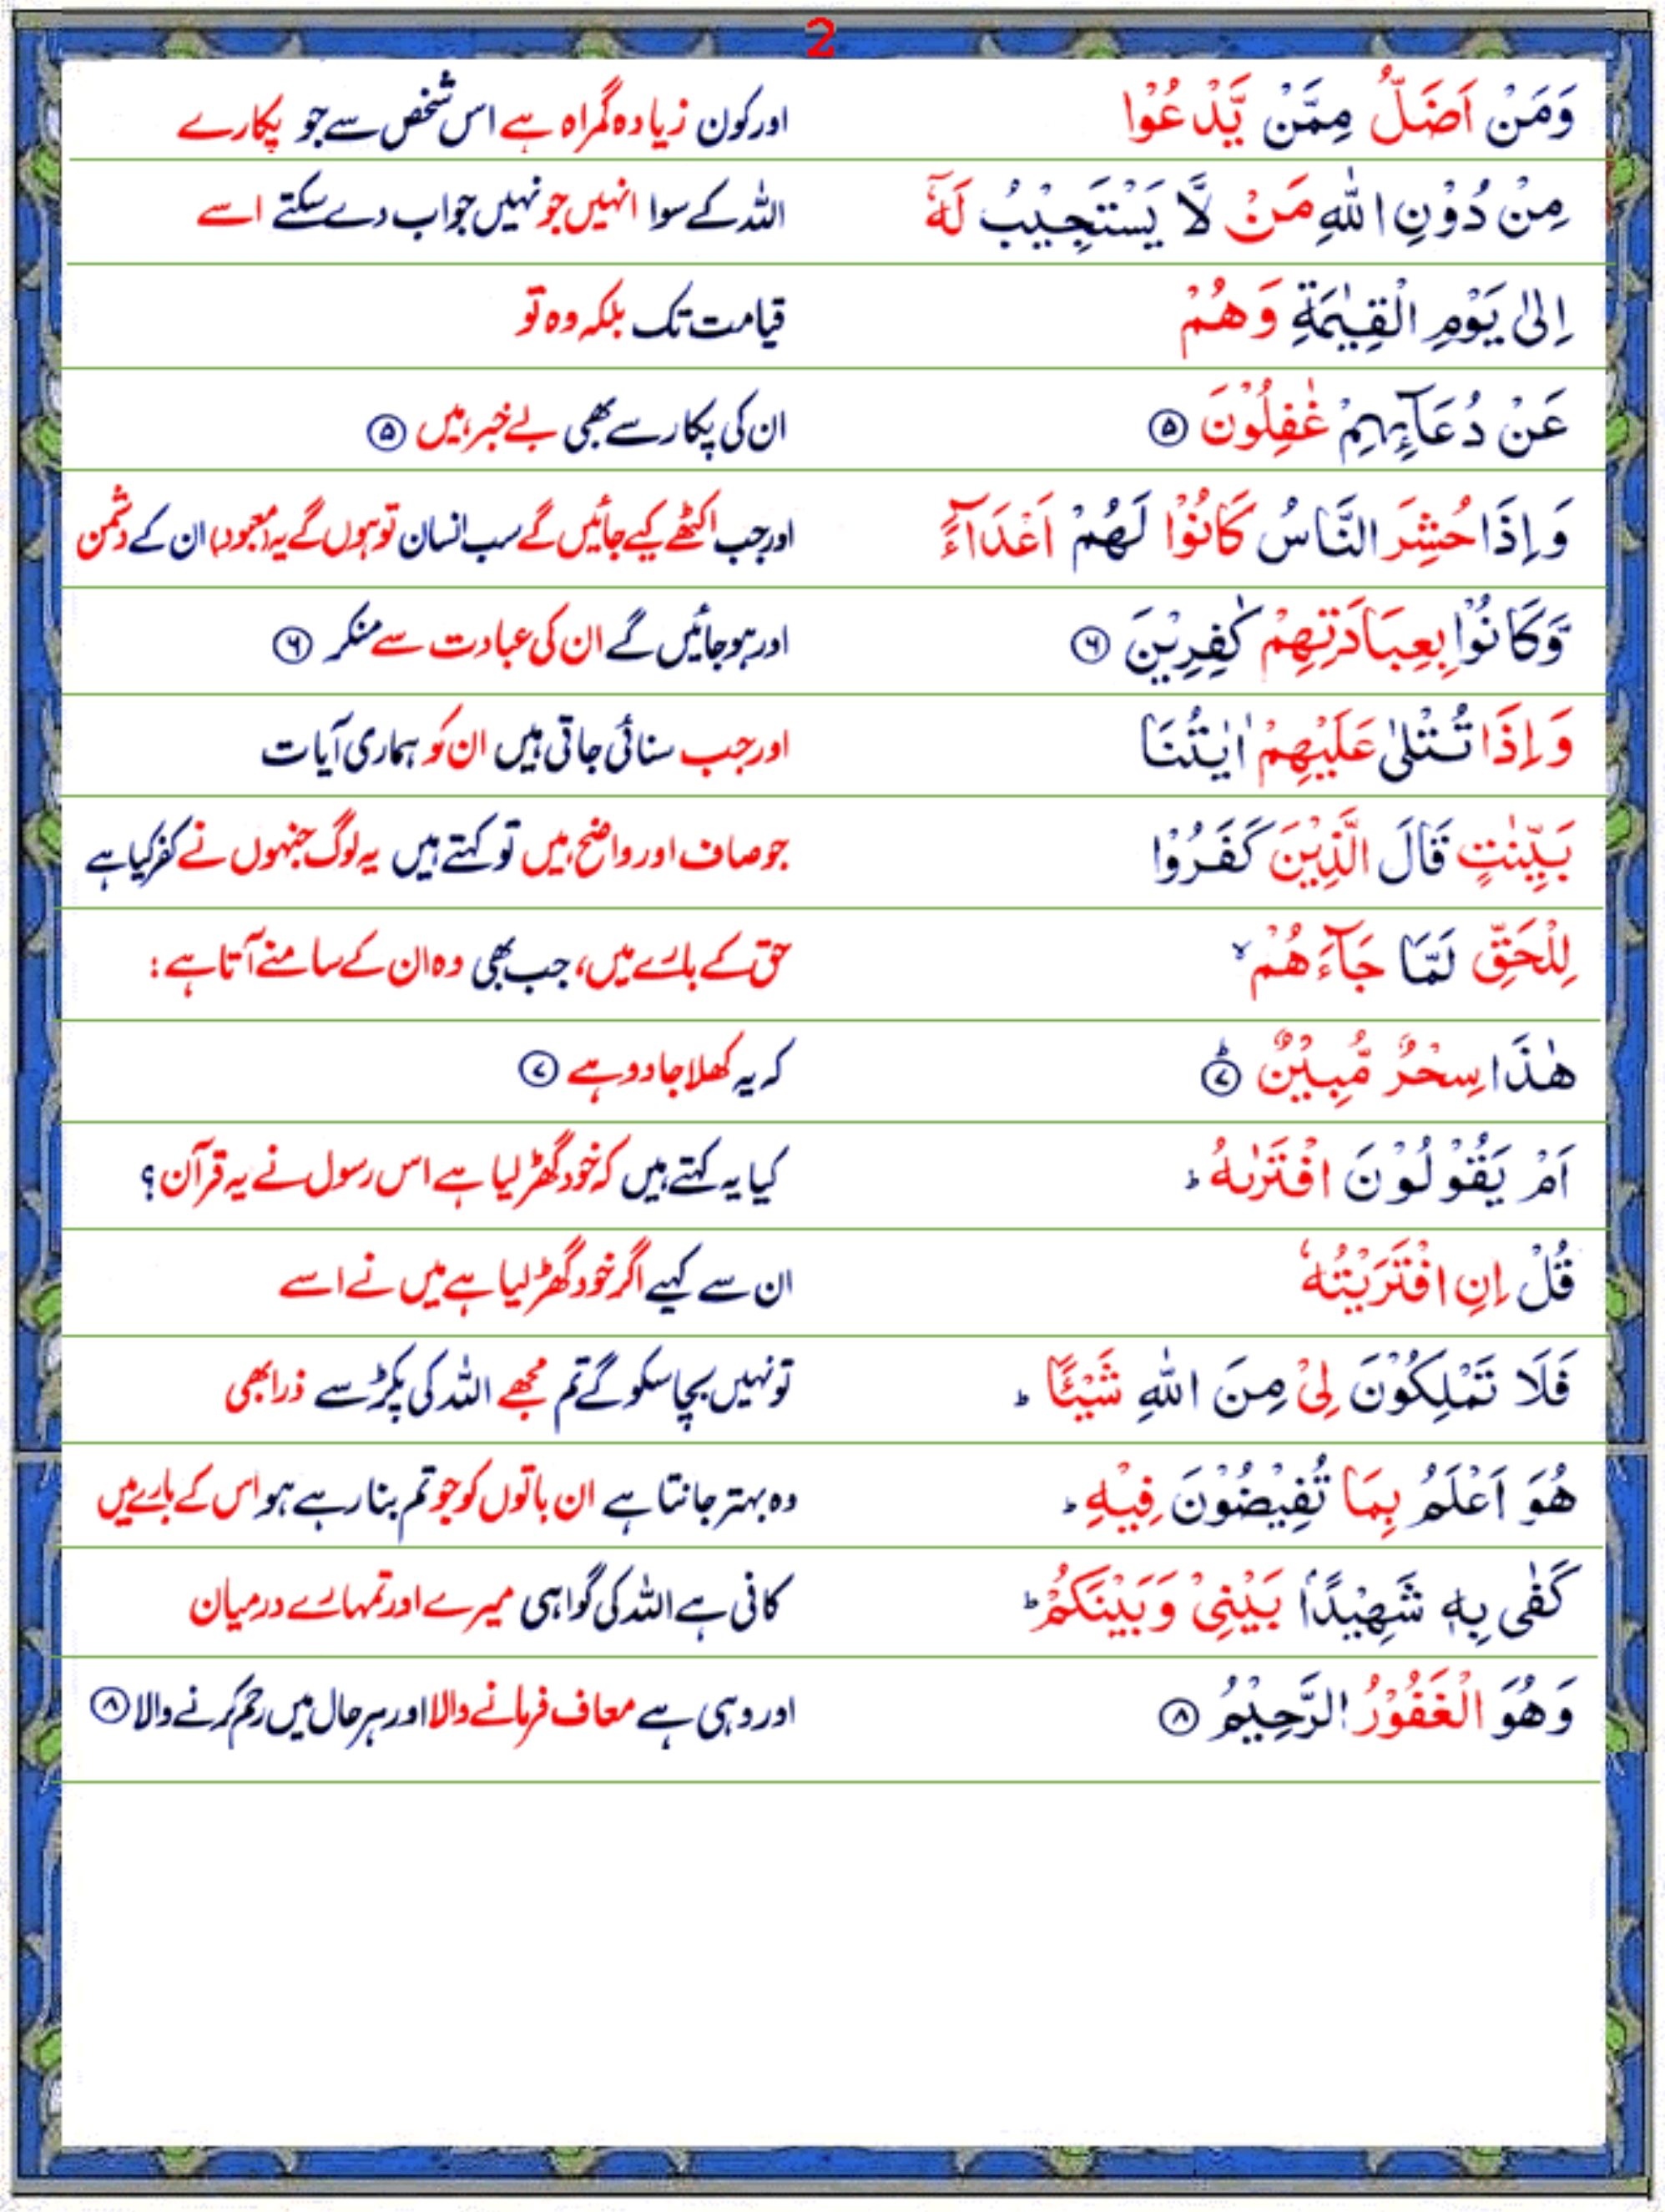 2
وَمَنْ اَضَلُّ مِمَّنْ يَّدْعُوْا اور کون زیادہ گمراہ ہے اس شخص سے جو پکارے
مِنْ دُوْنِ اللّٰهِ مَنْ لَّا يَسْتَجِيْبُ لَهٗٓ اللہ کے سوا انہیں جو نہیں جواب دے سکتے اسے
اِلٰى يَوْمِ الْقِيٰمَةِ وَهُمْ قیامت تک بلکہ وہ تو
عَنْ دُعَآئِهِمْ غٰفِلُوْنَ ۵ ان کی پکار سے بھی بے خبر ہیں ۵
وَاِذَا حُشِرَ النَّاسُ كَانُوْا لَهُمْ اَعْدَآءً اور جب اکٹھے کیے جائیں گے سب انسان تو ہوں گے یہ (معبود) ان کے دشمن
وَّكَانُوْا بِعِبَادَتِهِمْ كٰفِرِيْنَ ۶ اور ہو جائیں گے ان کی عبادت سے منکر ۶
وَاِذَا تُتْلٰى عَلَيْهِمْ اٰيٰتُنَا اور جب سنائی جاتی ہیں ان کو ہماری آیات
بَيِّنٰتٍ قَالَ الَّذِيْنَ كَفَرُوْا جو صاف اور واضح ہیں تو کہتے ہیں یہ لوگ جنہوں نے کفر کیا ہے
لِلْحَقِّ لَمَّا جَآءَهُمْ ۙ حق کے بارے میں، جب بھی وہ ان کے سامنے آتا ہے:
هٰذَا سِحْرٌ مُّبِيْنٌ ۷ؕ کہ یہ کھلا جادو ہے ۷
اَمْ يَقُوْلُوْنَ افْتَرٰىهُ ؕ کیا یہ کہتے ہیں کہ خود گھڑ لیا ہے اس رسول نے یہ قرآن؟
قُلْ اِنِ افْتَرَيْتُهٗ ان سے کہیے اگر خود گھڑ لیا ہے میں نے اسے
فَلَا تَمْلِكُوْنَ لِيْ مِنَ اللّٰهِ شَيْئًا ؕ تو نہیں بچا سکو گے تم مجھے اللہ کی پکڑ سے ذرا بھی
هُوَ اَعْلَمُ بِمَا تُفِيْضُوْنَ فِيْهِ ؕ وہ بہتر جانتا ہے ان باتوں کو جو تم بنا رہے ہو اس کے بارے میں
كَفٰى بِهٖ شَهِيْدًاۢ بَيْنِيْ وَبَيْنَكُمْ ؕ کافی ہے اللہ کی گواہی میرے اور تمہارے درمیان
وَهُوَ الْغَفُوْرُ الرَّحِيْمُ ۸ اور وہی ہے معاف فرمانے والا اور ہر حال میں رحم کرنے والا ۸